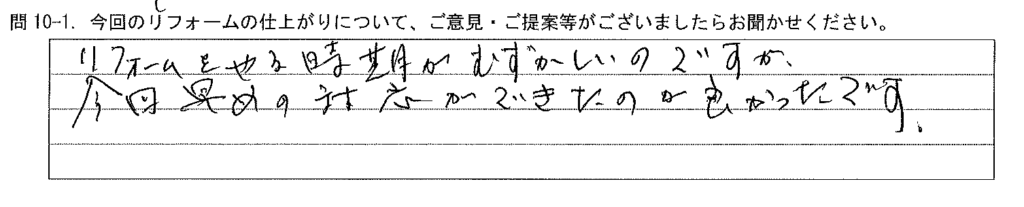 問10-1. 今回のリフォームの仕上がりについて、ご意見・ご提案等がございましたらお聞かせください。
リフォームをやる時期がむずかしいのですが、
今回早めの対応ができたのが良かったです。